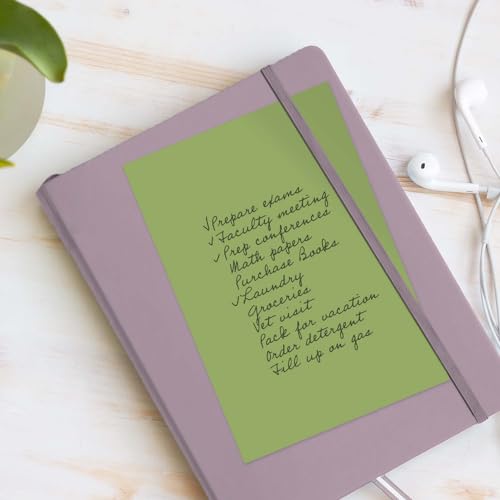 ✓Prepare exams
✓Faculty meeting
✓Prep conferences
Math papers
Purchase Books
✓Laundry
Groceries
Vet visit
Pack for vacation
Order detergent
Fill up on gas